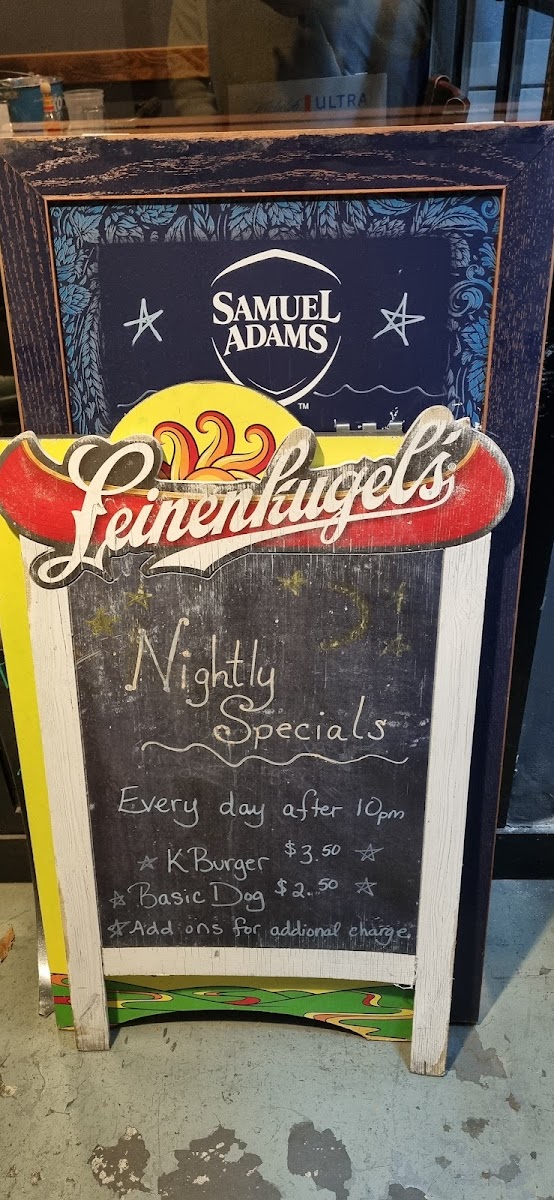 ULTRA
SAMUEL
ADAMS
TM
Leinenkugel's
Nightly
Specials
Every day after 10pm
K Burger $3.50
Basic Dog $2.50
Add ons for addional charge